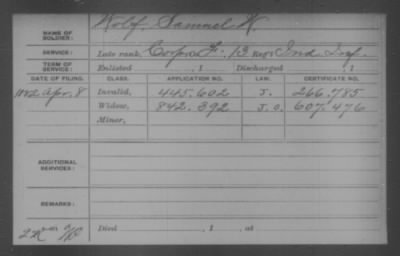 NAME OF SOLDIER: Wolf, Samuel H.
SERVICE: Late rank, Corp Co. F. 13 Reg't Ind. Inf.
TERM OF SERVICE: Enlisted , 1 Discharged , 1
DATE OF FILING. CLASS. APPLICATION NO. LAW. CERTIFICATE NO.
1882 Apr. 8 Invalid, 445.602 J. 266.785
Widow, 842.392 J.O. 607.476
Minor,
ADDITIONAL SERVICES:
REMARKS:
Died , 1 , at